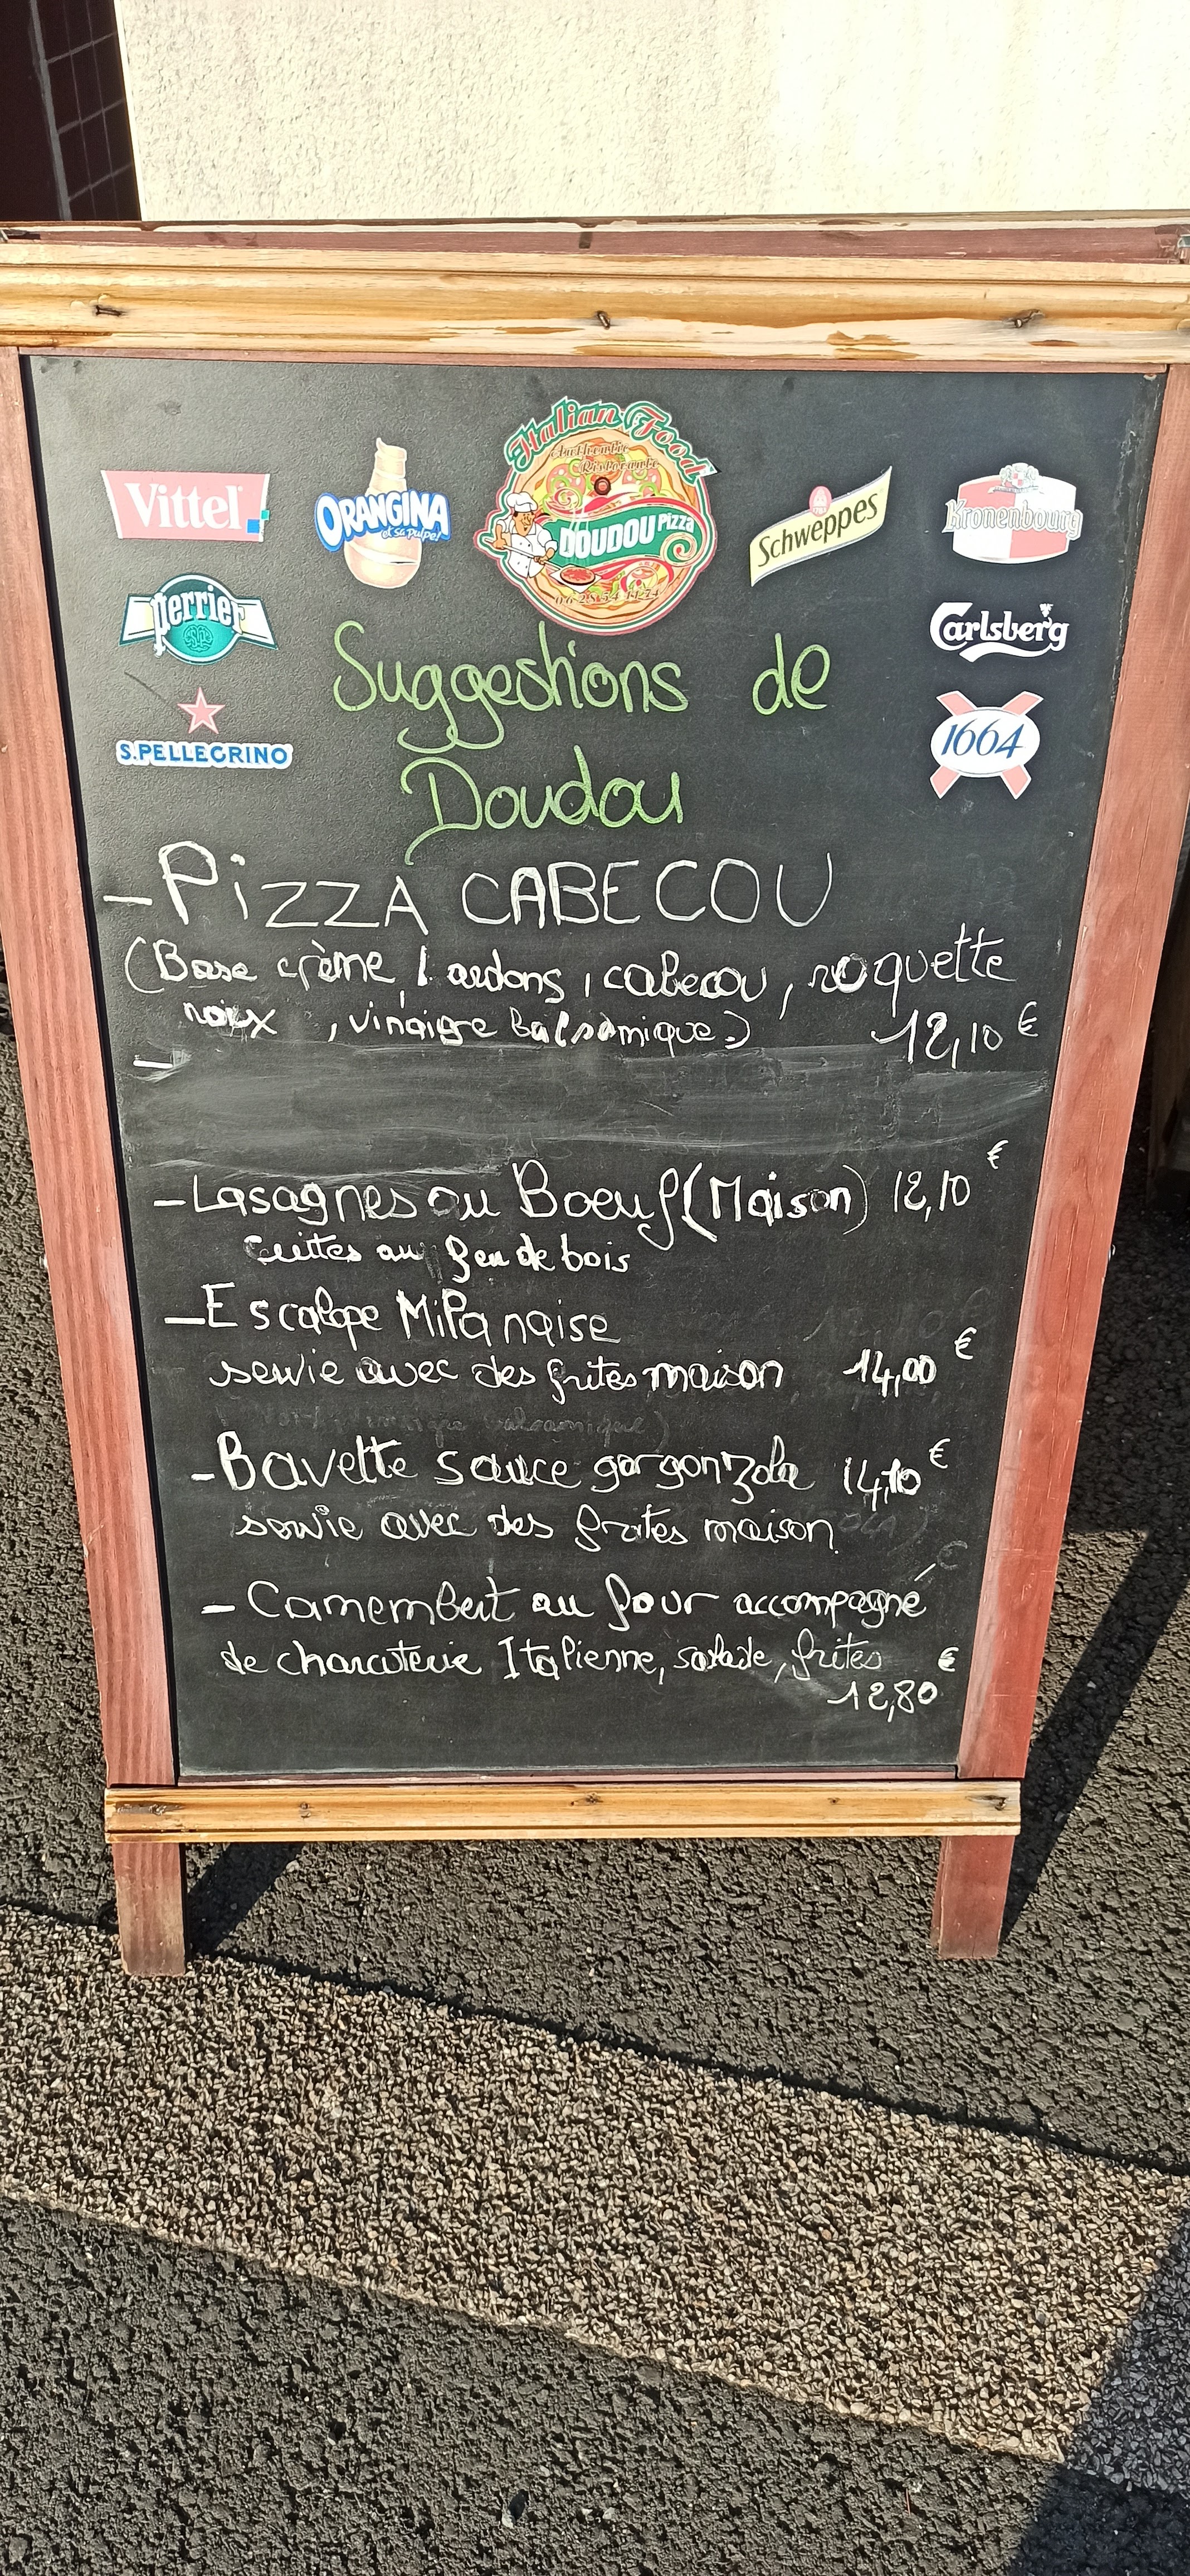 Italian Food
Authentic
Ristorante
Vittel
ORANGINA
et sa pulpe!
DOUDOU Pizza
Schweppes
Kronenbourg
perrier
Carlsberg
S.PELLEGRINO
1664
Suggestions de
Doudou
- PIZZA CABECOU
(Base crème, lardons, cabecou, roquette
noix , vinaigre balsamique.) 12,10 €
-
- Lasagnes au Boeuf (Maison) 12,10 €
cuites au feu de bois
- Escalope Milanaise
servie avec des frites maison 14,00 €
- Bavette sauce gorgonzola 14,10 €
servie avec des frites maison
- Camembert au four accompagné
de charcuterie Italienne, salade, frites €
12,80